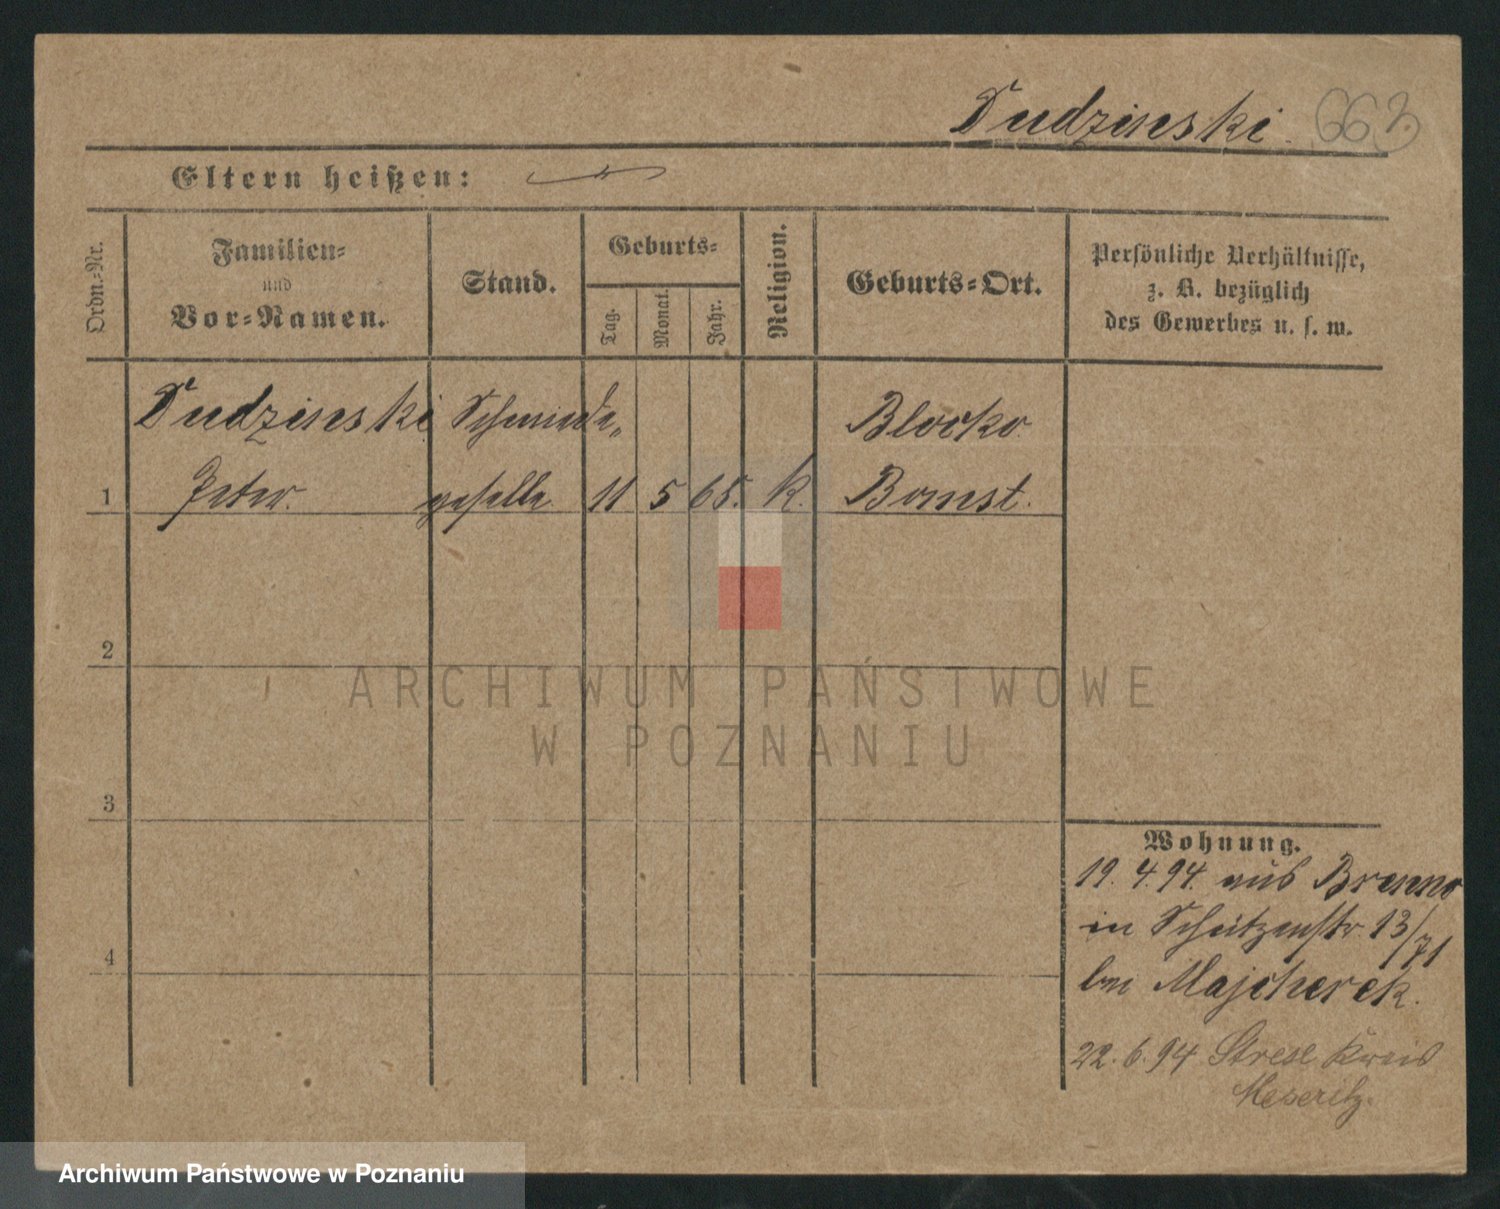 Dudzinski. 663.
Eltern heißen: -"-
Ordn.-Nr.
Familien-
und
Vor-Namen.
Stand.
Geburts-
Tag.
Monat.
Jahr.
Religion.
Geburts-Ort.
Persönliche Verhältnisse,
z. B. bezüglich
des Gewerbes u. s. w.
Dudzinski Schmiede- Blocko
1 Peter. geselle 11 5 65. k. Bomst.
2
ARCHIWUM PAŃSTWOWE
W POZNANIU
3
Wohnung.
19. 4. 94. aus Brenno
in Schützenstr. 13/71
4
bei Majcherek.
22. 6. 94 Strese Kreis
Meseritz.
Archiwum Państwowe w Poznaniu